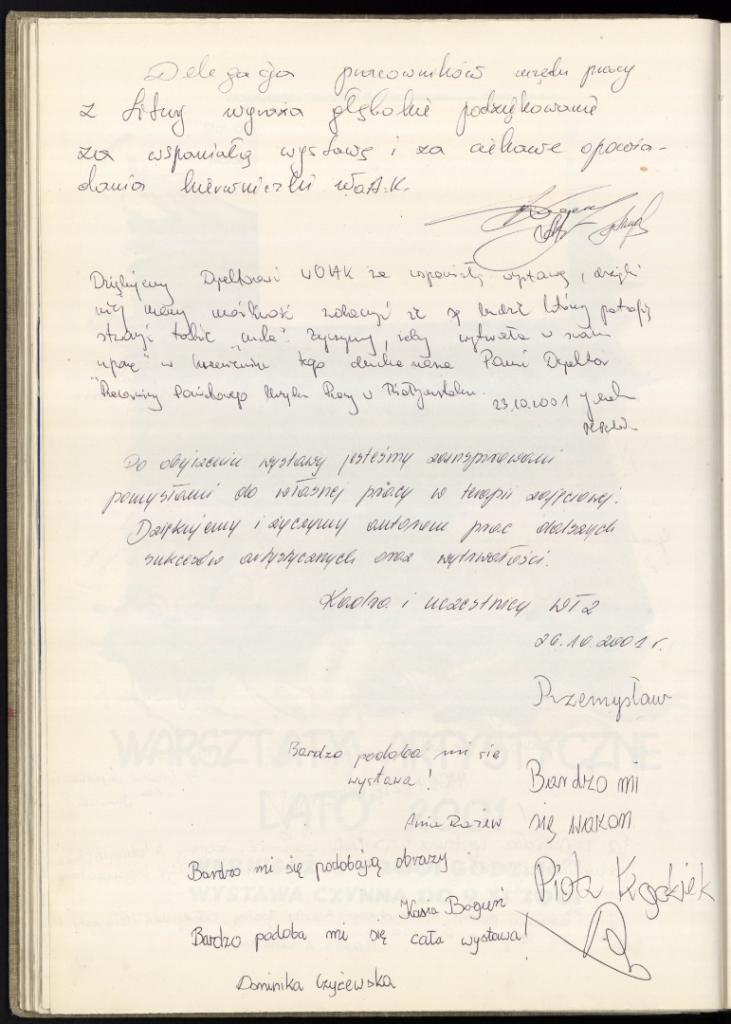 Delegacja pracowników urzędu pracy
z Litwy wyraża głębokie podziękowanie
za wspaniałą wystawę i za ciekawe opowia-
dania kierowniczki WOAK.
Dziękujemy Dyrektorowi WOAK za wspaniałą wystawę, dzięki
niej mamy możność zobaczyć że są ludzie którzy potrafią
tworzyć takie cuda. Życzymy, żeby wytrwała w swoim
tego Pani Dyrektor
Pracownicy Państwowego Urzędu Pracy w
23.10.2001
Po obejrzeniu wystawy jesteśmy zainspirowani
pomysłami do własnej pracy w terapii zajęciowej.
Dziękujemy i życzymy autorom prac dalszych
sukcesów artystycznych oraz wytrwałości.
Kadra i uczestnicy WTZ
26.10.2001 r.
Przemysław
Bardzo podoba mi się
wystawa!
Bardzo mi
Ania
się
Bardzo mi się podobają obrazy
Piotr
Kasia Boguń
Bardzo podoba mi się cała wystawa!
Dominika Czyżewska
WARSZTATY ARTYSTYCZNE
LATO 2001
WYSTAWA CZYNNA DO